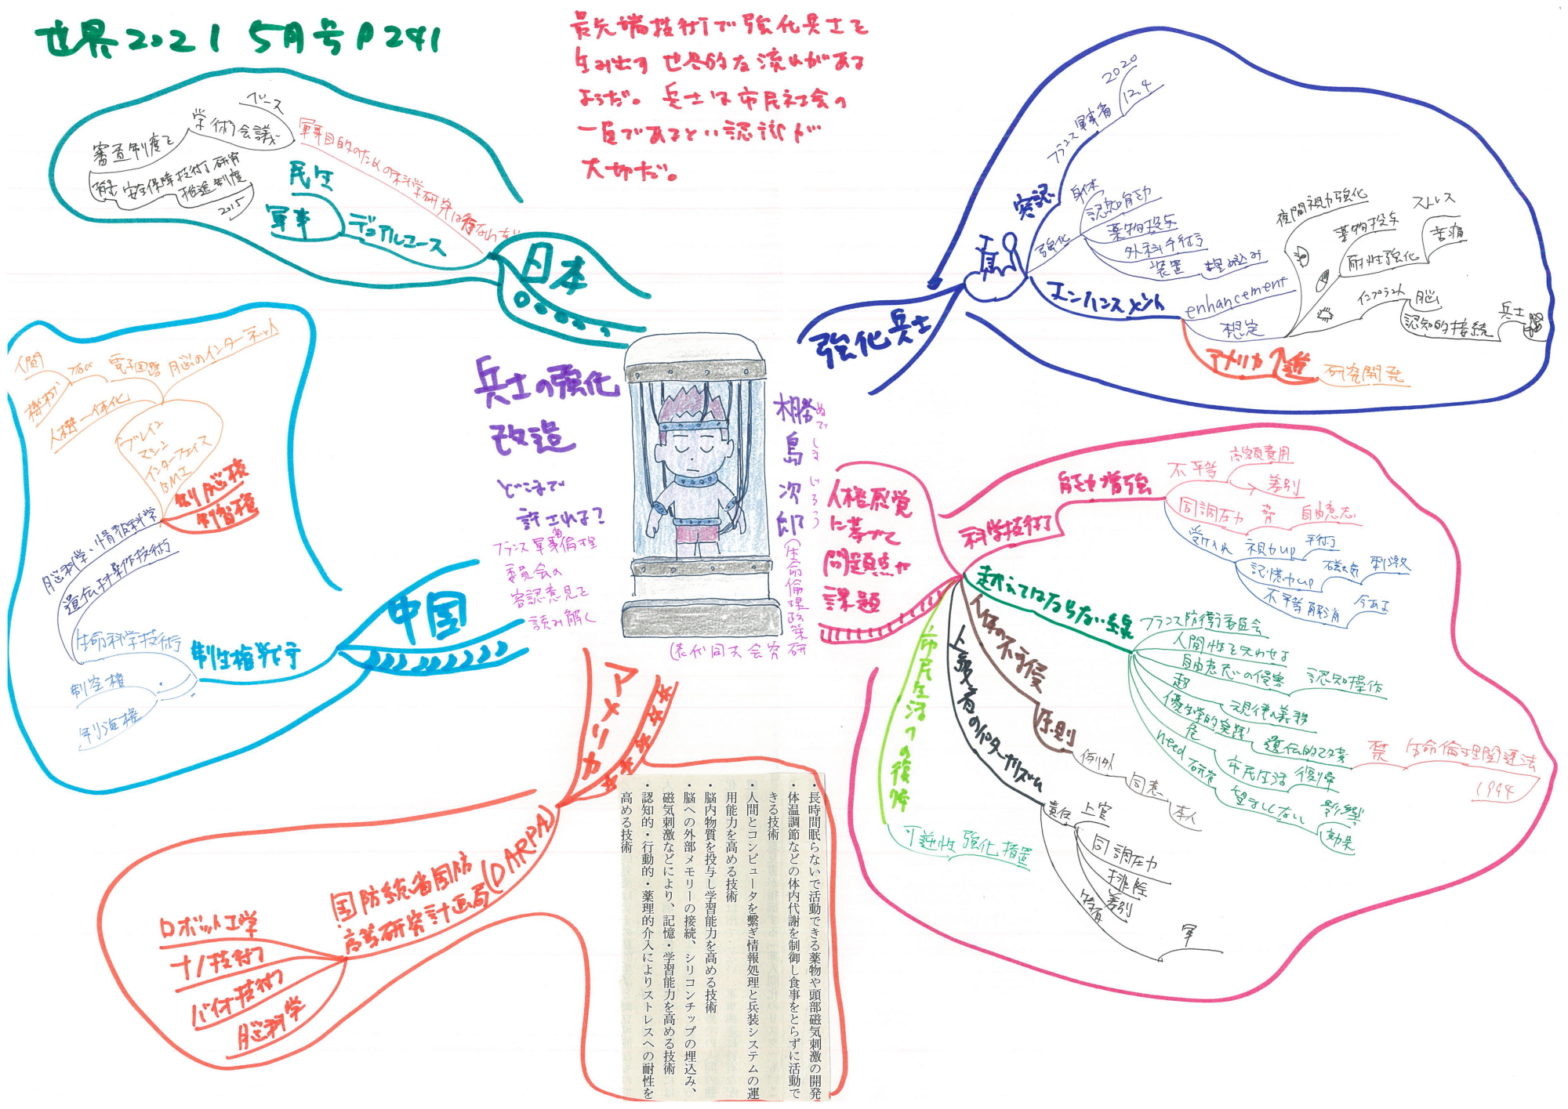 世界2021 5月号 P241
最先端技術で強化兵士を
生み出す世界的な流れがある
ようだ。兵士は市民社会の
一員であるという認識が
大切だ。
兵士の強化
改造
どこまで
許される?
フランス軍事倫理
委員会の
容認意見を
読み解く
橳島次郎
ぬでしまじろう
(生命倫理政策研
究会共同代表)
強化兵士
容認
フランス 軍事省
2020
12.4
強化
身体
認知能力
薬物投与
外科手術
装置 埋め込み
エンハンスメント
enhancement
想定
夜間視力強化
薬物投与
耐性強化
ストレス
苦痛
インプラント 脳
認知的接続 兵士
アメリカ
研究開発
人権感覚
に基づく
問題点や
課題
科学技術
能力増強
不平等
高額費用
差別
同調圧力
自由意志
受け入れ
視力up 手術
記憶力up 磁気 刺激
不平等解消
越えてはならない線
フランス防衛委員会
人間性を失わせる
自由意志の侵害 認知操作
超
優生学的実践 遺伝的改変
禁 生命倫理関連法
1994
危 市民生活 復帰
need 研究 望ましくない 影響
効果
人体の不可侵
原則
例外
同意
本人
上官
責任
同調圧力
排除
差別
軍
市民生活への復帰
可逆性 強化措置
アメリカ
国防総省国防
高等研究計画局(DARPA)
ロボット工学
ナノ技術
バイオ技術
脳科学
・長時間眠らないで活動できる薬物や頭部磁気刺激の開発
・体温調節などの体内代謝を制御し食事をとらずに活動で
きる技術
・人間とコンピュータを繋ぎ情報処理と兵装システムの運
用能力を高める技術
・脳内物質を投与し学習能力を高める技術
・脳への外部メモリーの接続、シリコンチップの埋込み、
磁気刺激などにより、記憶・学習能力を高める技術
・認知的・行動的・薬理的介入によりストレスへの耐性を
高める技術
中国
制生権戦争
生命科学技術
制空権
制海権
脳科学・情報科学
遺伝子操作技術
制脳権
制智権
ブレイン
マシン
インターフェイス
BMI
人機一体化
人間
機械
電子回路
脳のインターネット
日本
軍事目的のための科学研究は行なわない
学術会議
ブース
審査制度を
安全保障技術研究
推進制度
2015
デュアルユース
民生
軍事